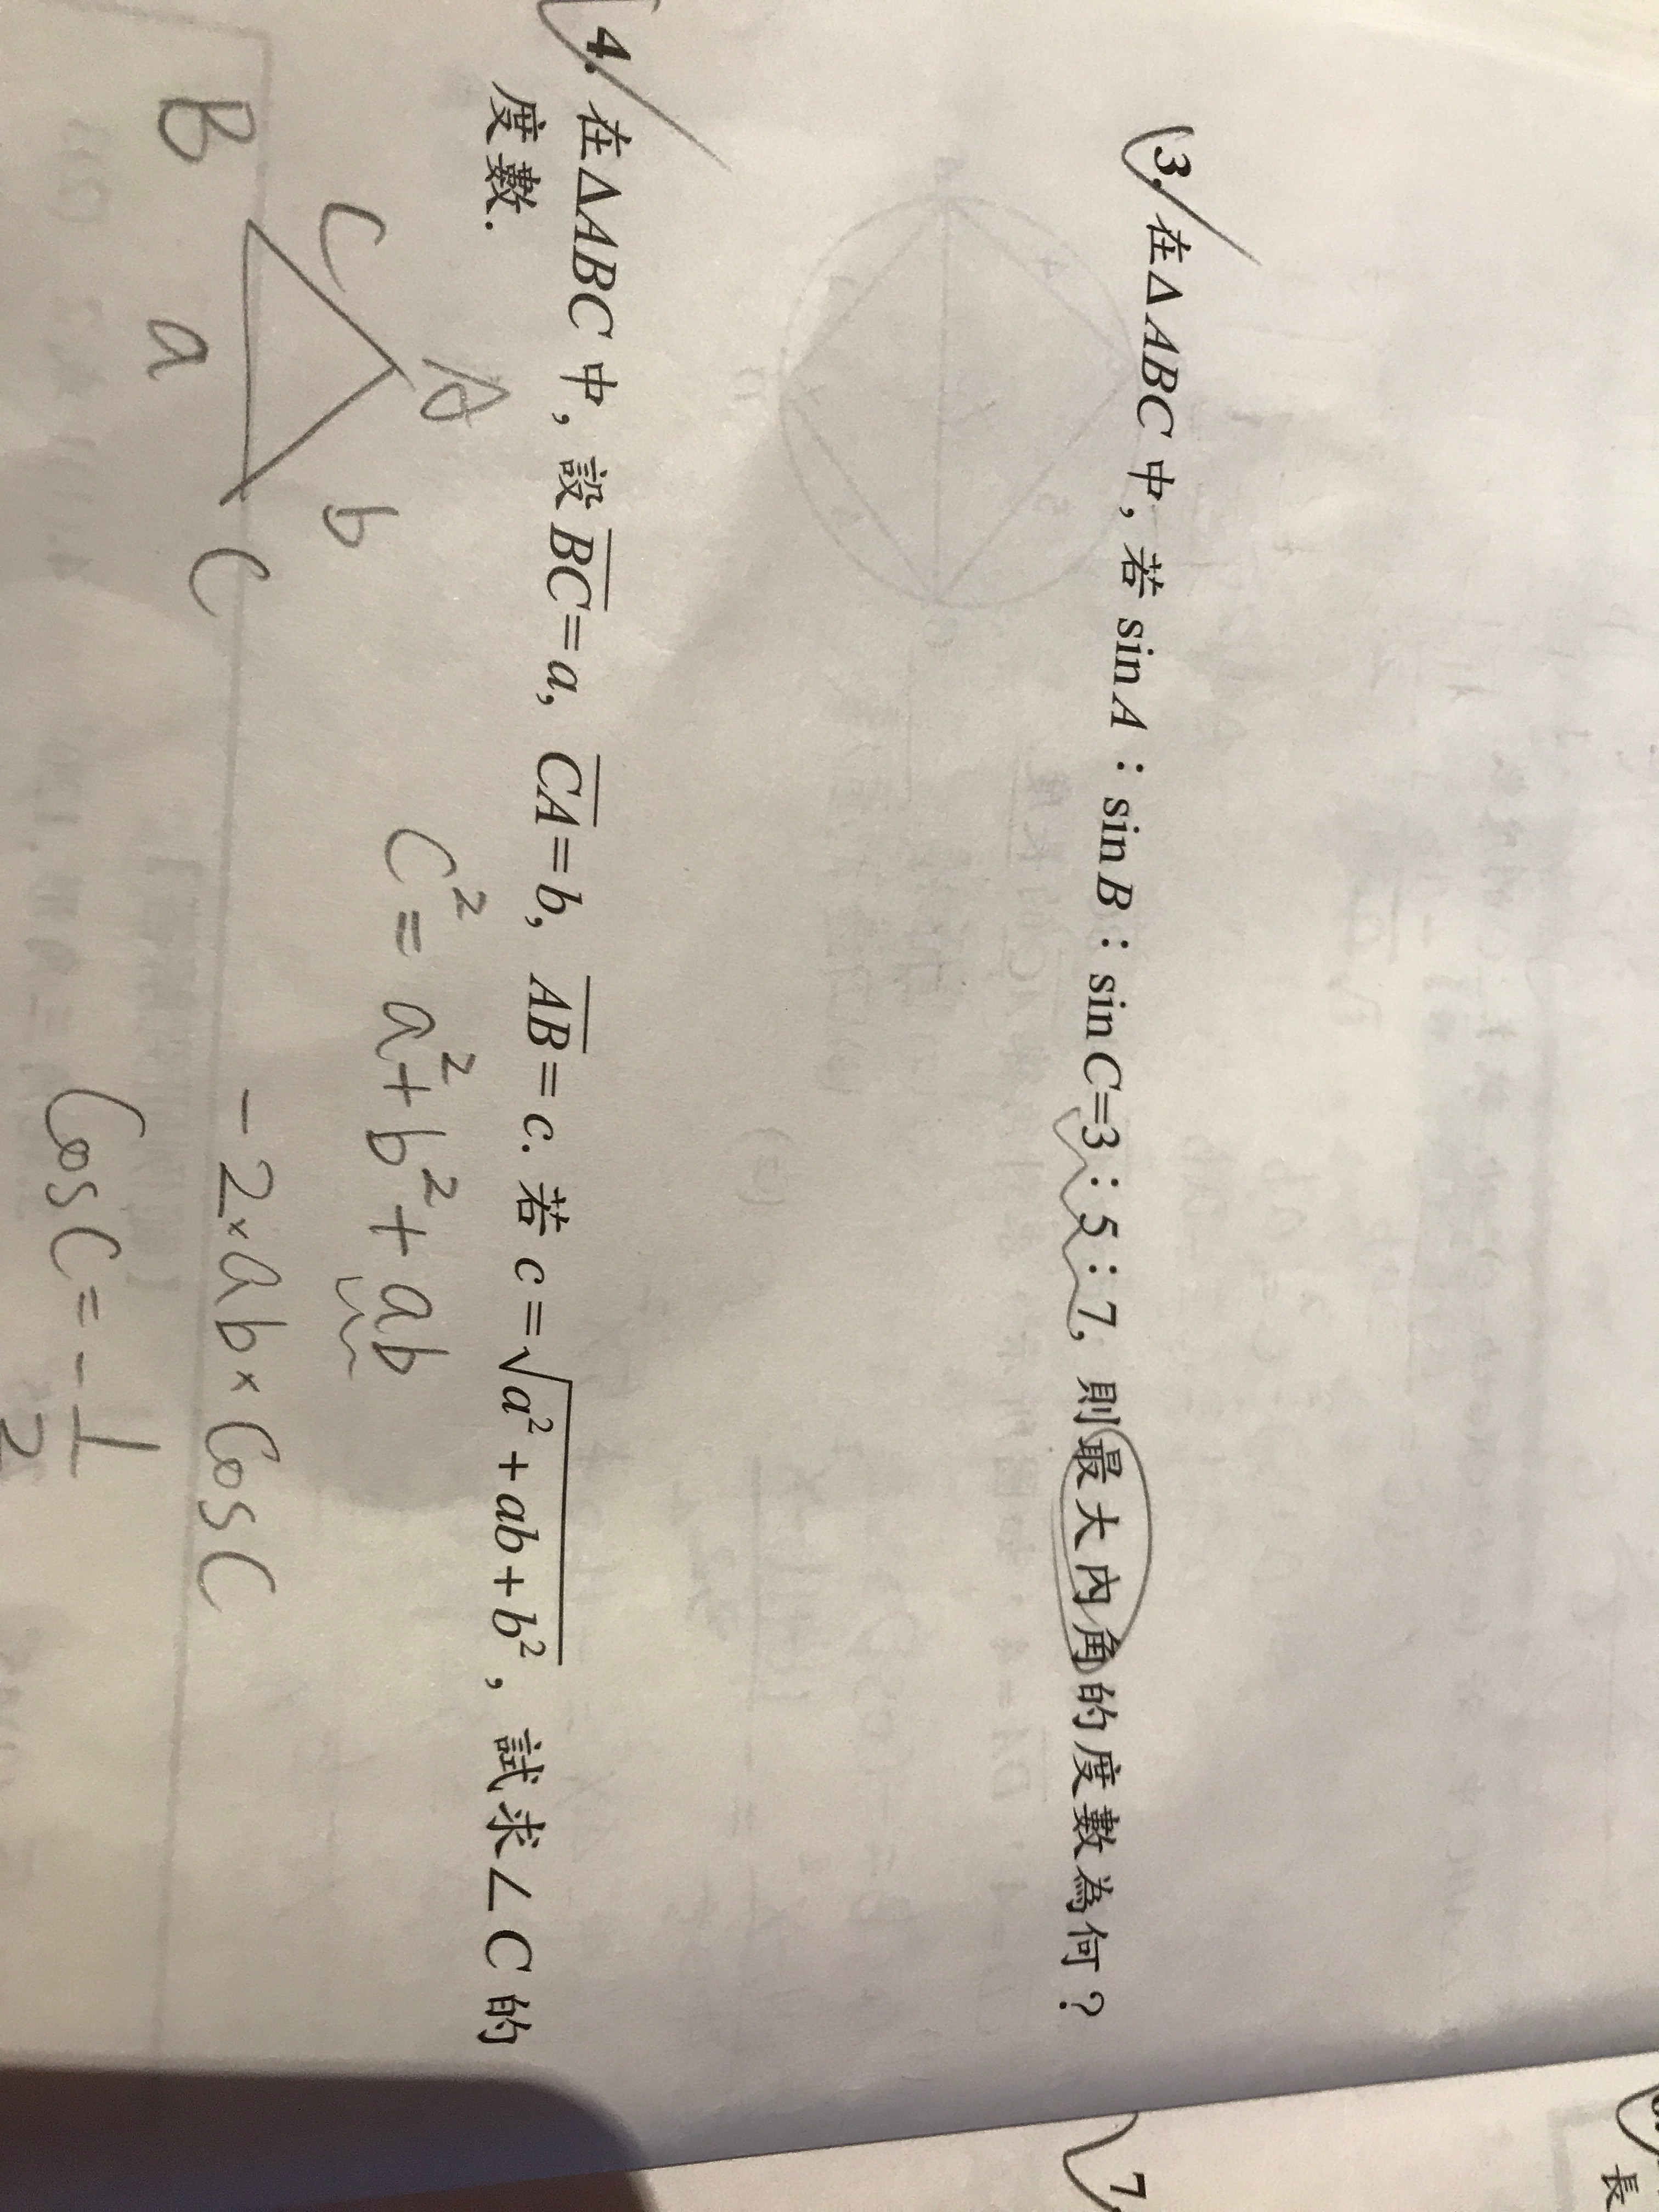 3. 在△ABC中, 若 sinA : sinB : sinC=3 : 5 : 7, 則最大內角的度數為何？
4. 在△ABC中, 設 \overline{BC}=a, \overline{CA}=b, \overline{AB}=c. 若 c=\sqrt{a²+ab+b²}, 試求∠C的
度數.
A
B
C
a
b
C
C²= a²+b²+ab
-2×ab×CosC
CosC=-1/2
7.
長